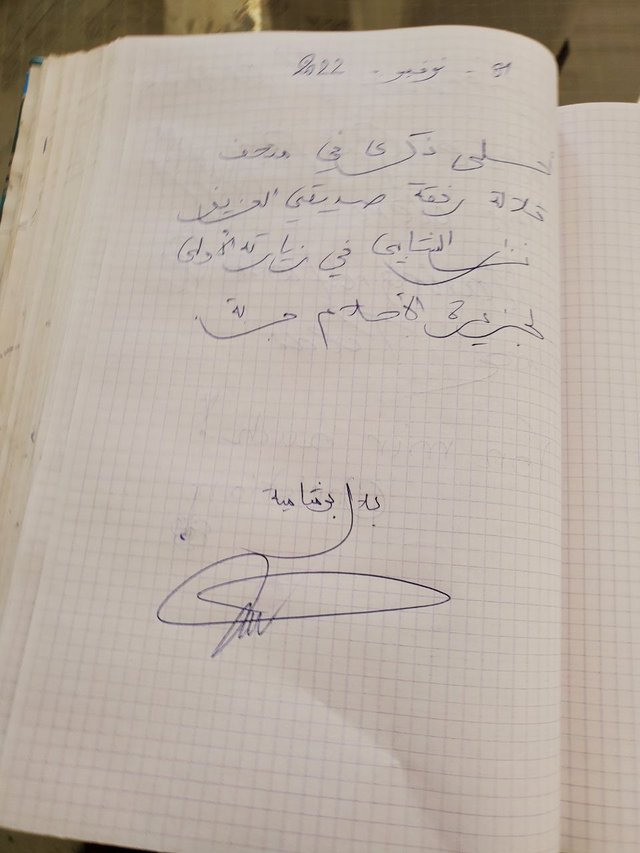 نوفمبر - 2022
أحلى ذكرى في متحف
قلالة رفقة صديقي العزيز
نزار الشابي في زيارته الأولى
لجزيرة الأحلام جربة